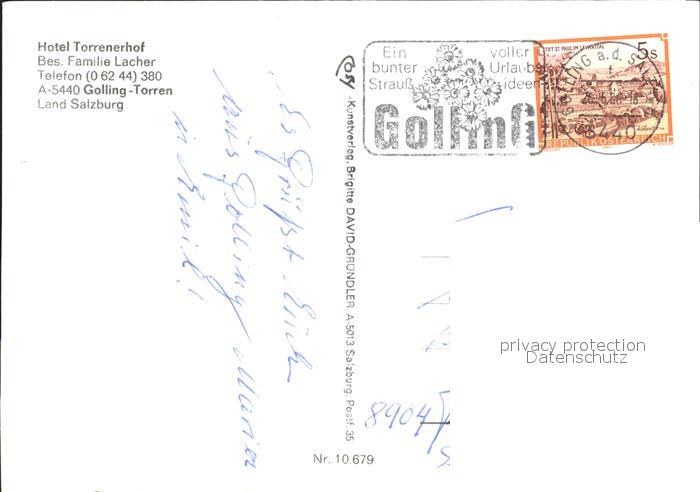 Hotel Torrenerhof
Bes. Familie Lacher
Telefon (0 62 44) 380
A-5440 Golling-Torren
Land Salzburg
Ein voller
bunter Urlaubs
Strauß ideen
Golling
STIFT ST. PAUL IM LAVANTTAL
5s
REPUBLIK ÖSTERREICH
GOLLING a.d. SALZ
5440
Cosy-Kunstverlag, Brigitte DAVID-GRÜNDLER A-5013 Salzburg, Postf. 35
Es Grüßt Euch
aus Golling Marien
8904
Nr. 10.679
privacy protection
Datenschutz